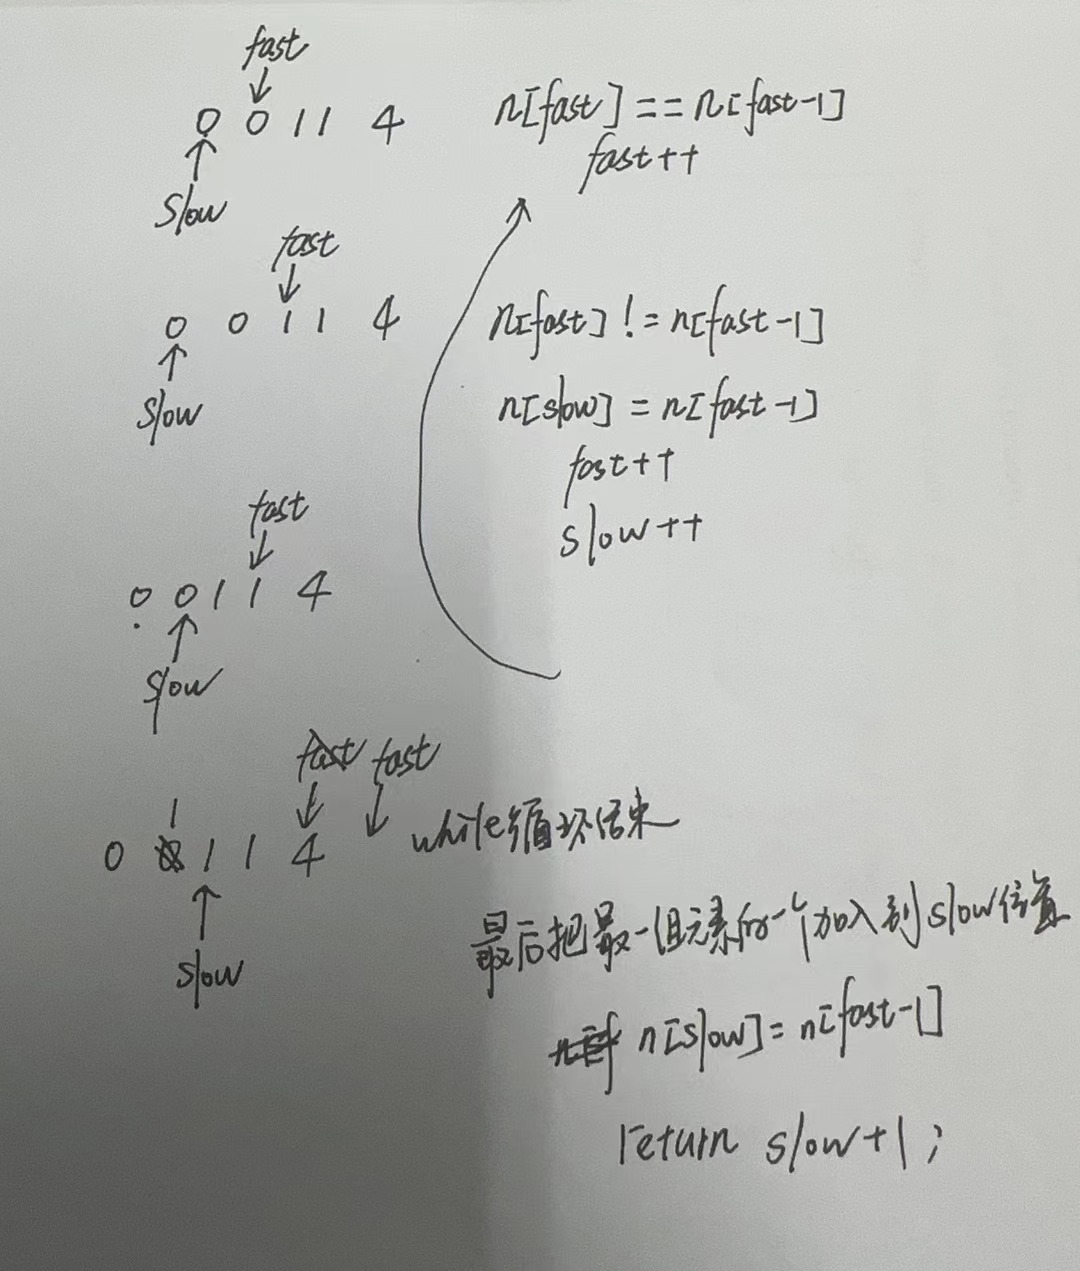 fast
0 0 1 1 4
slow
n[fast] == n[fast-1]
fast++
fast
0 0 1 1 4
slow
n[fast] != n[fast-1]
n[slow] = n[fast-1]
fast++
slow++
fast
0 0 1 1 4
slow
fast fast
1
0 1 1 4
slow
while循环结束
最后把最一组元素的一个加入到slow位置
n[slow] = n[fast-1]
return slow+1;